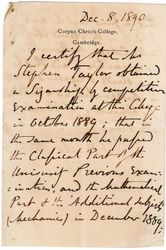 Dec. 8, 1890
Corpus Christi College,
Cambridge.
I certify that Mr
Stephen Taylor obtained
a Sizarship by competitive
Examination at this College
in October 1889; that in
the same month he passed
the Classical Part of the
University Previous Exam-
ination, and the Mathematical
Part & the Additional Subjects
(Mechanics) in December 1889.